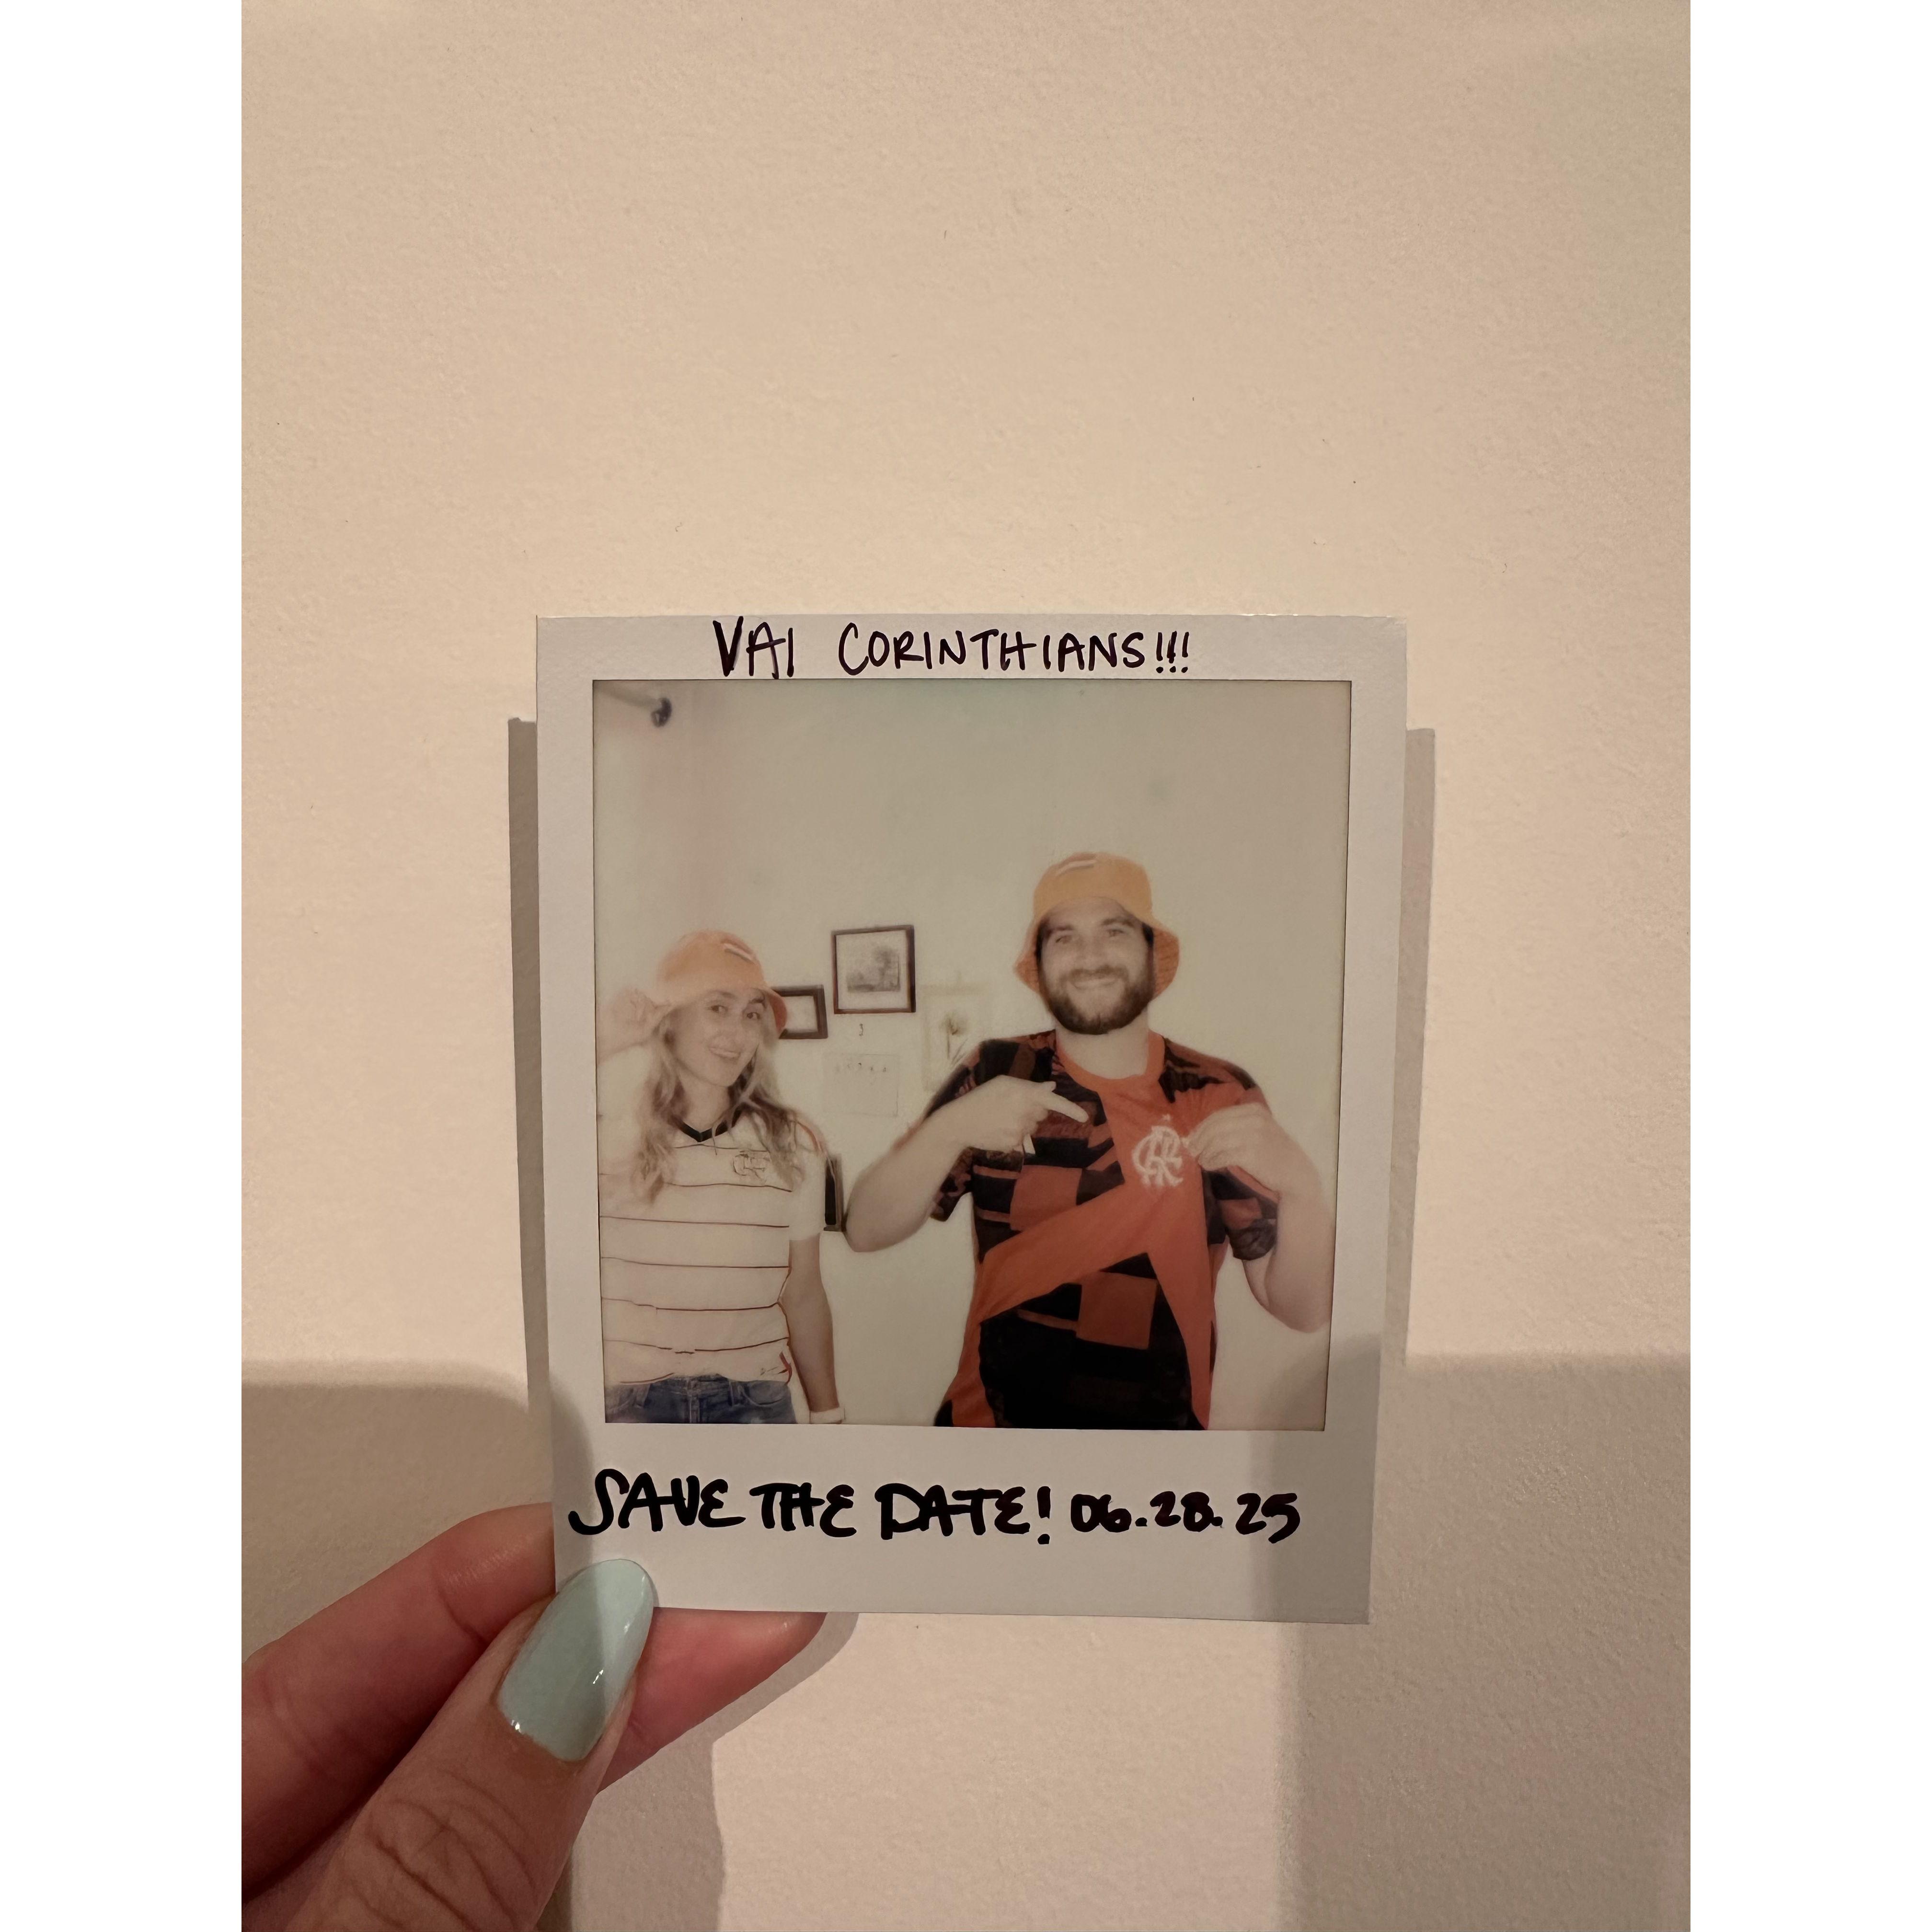 VAI CORINTHIANS!!!
CRF
SAVE THE DATE! 06.28.25